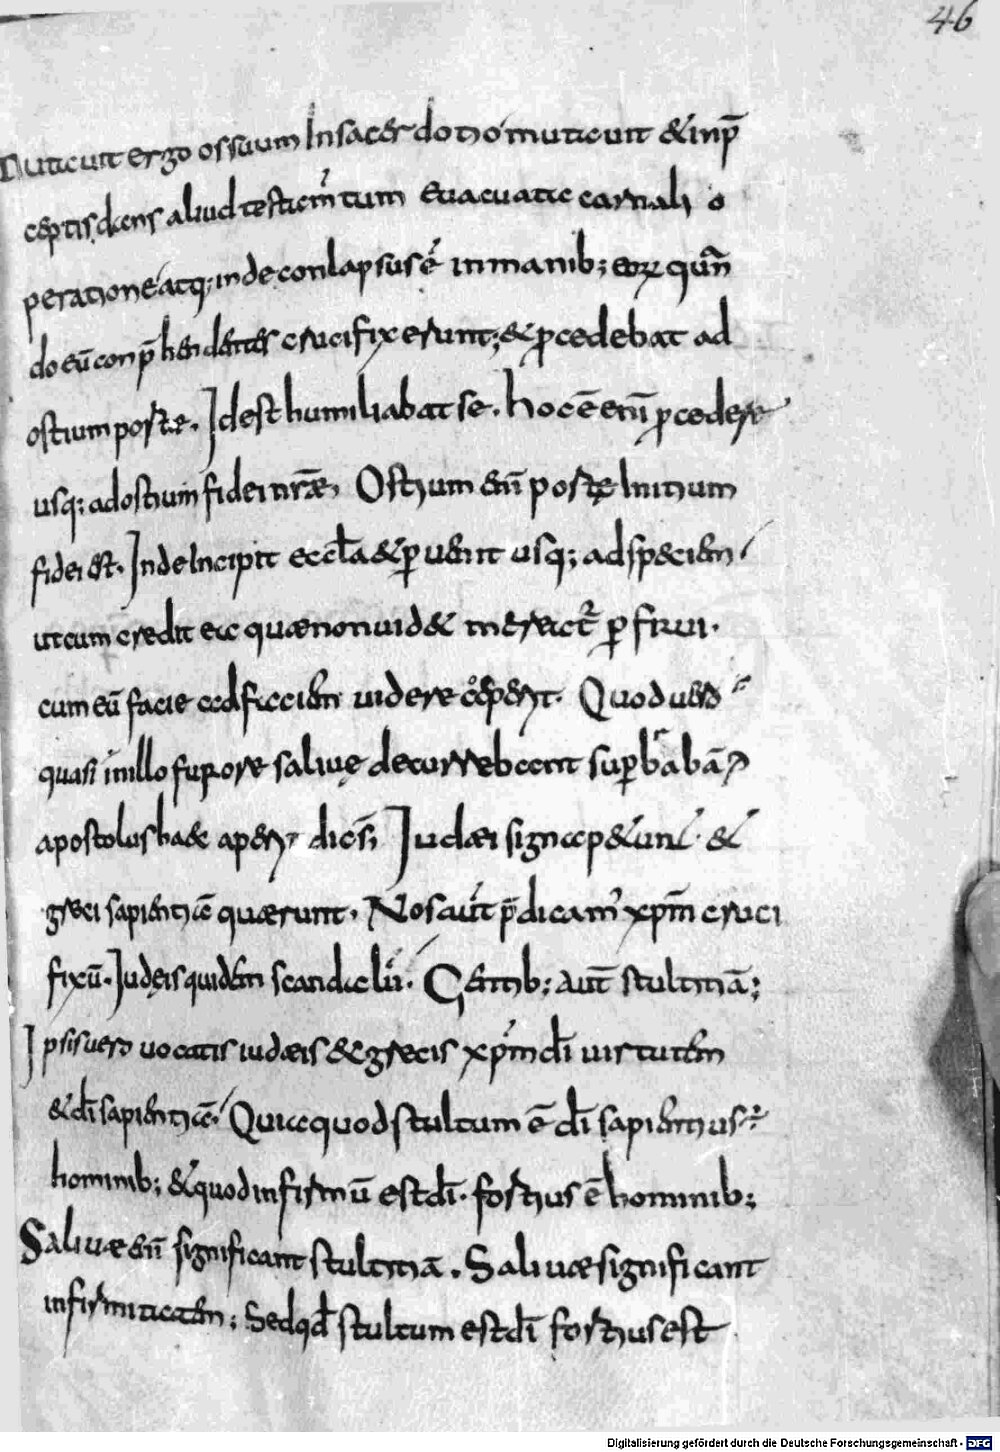 46
Muticuit ergo os suum In sacerdotio muticuit & inp̄
ceptis dicens aliud testam̄tum Euacuatae carnali o
peratione atq; inde conlapsus ē in manib; eorꝝ quān
do eū conp̄hendentes crucifixerunt; & ꝓcedebat ad
ostium portæ. Idest humiliabat se. hoc ē enī ꝓcedere
usq; ad ostium fidei nr̄æ, Ostium enī portę Initium
fidei est. Inde Incipit eccl̄a & ꝑuenit usq; ad speciem
ut cum credit ea quæ non uid& mereat̄ ꝑfrui.
cum eū facie ad faciem uidere coeperit. Quod uero
quasi in illo furore saliue decurrebant suꝑ barbā
apostolus hac aperit dicens; Iudæi signa p&unt &
greci sapientiā quærunt. Nos aut p̄dicam' xp̄m cruci
fixū. Iudeis quidem scandalū. Gentib; aut̄ stultitiā;
Ipsis uero uocatis iudæis & grecis xp̄m dī uirtutem
& dī sapientiā. Quia quod stultum ē dī sapientius ē
hominib; & quod infirmū est dī. fortius ē hominib;
Saliuæ enī significant stultitiā. Saliuæ significant
infirmitatem; Sed qd̄ stultum est dī fortius est
Digitalisierung gefördert durch die Deutsche Forschungsgemeinschaft - DFG